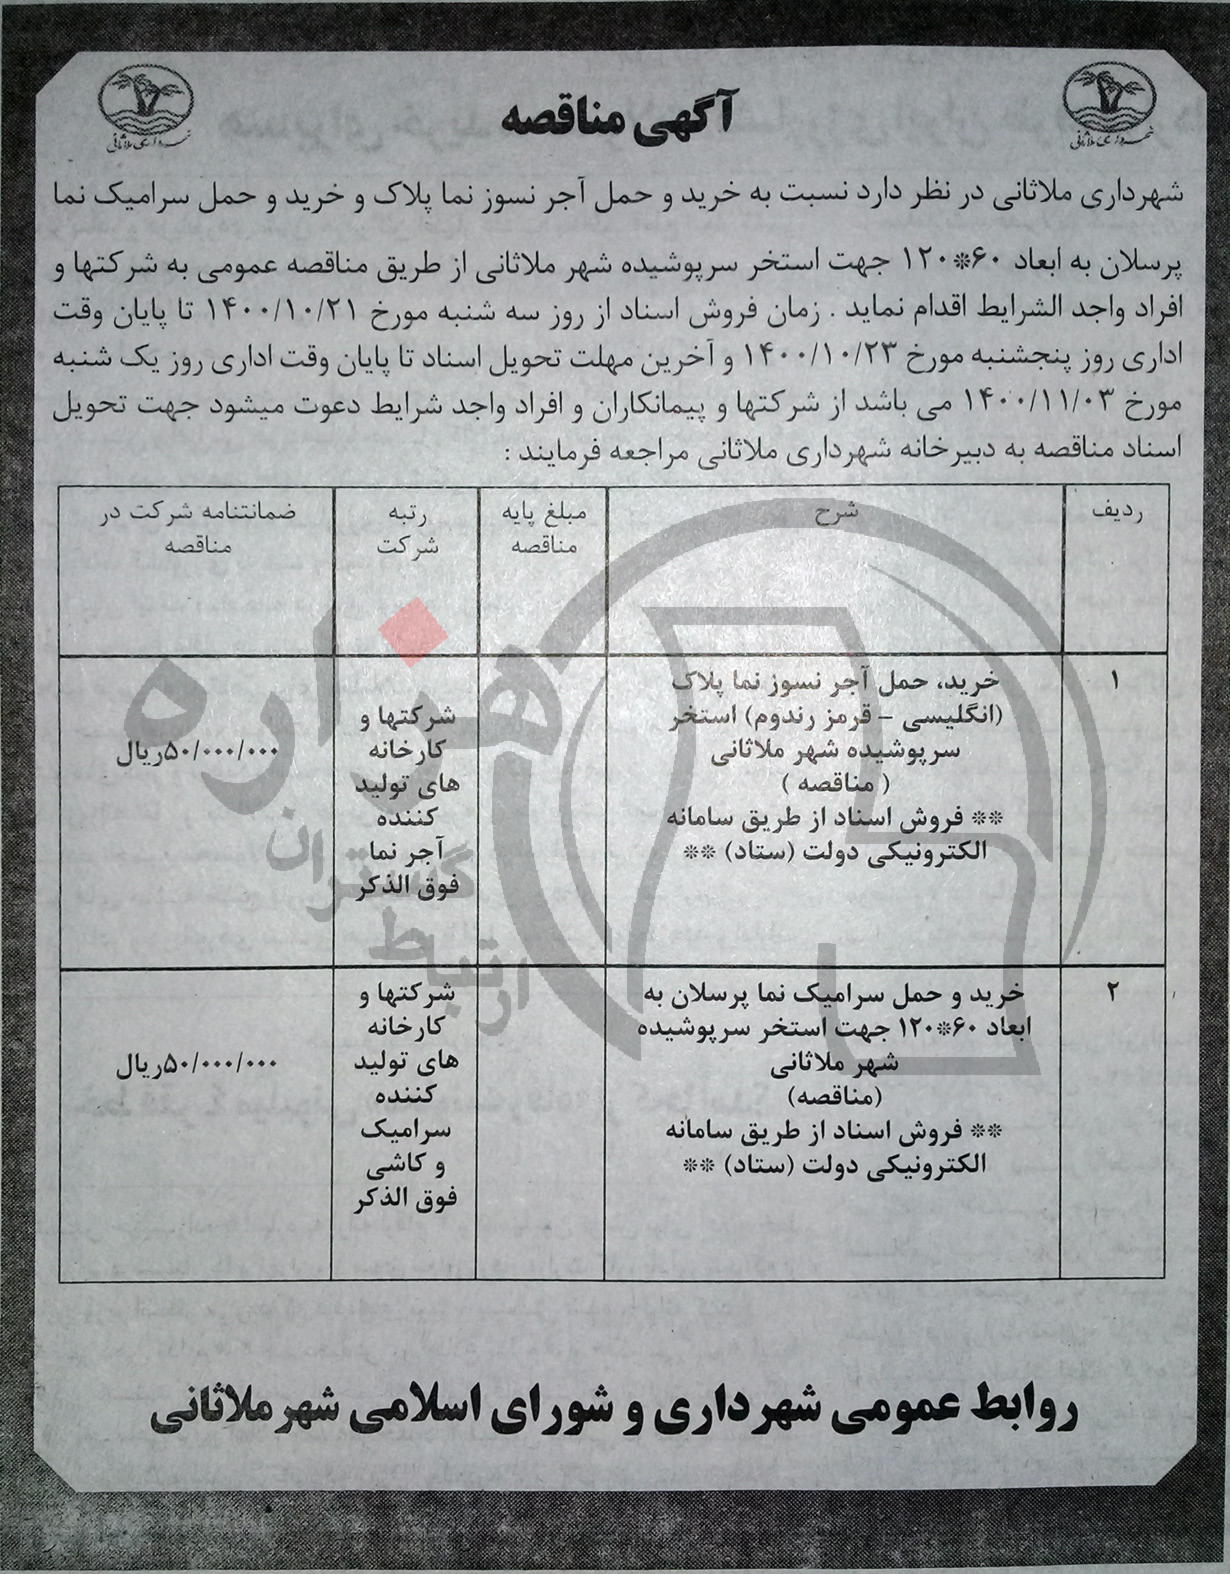 آگهی مناقصه
شهرداری ملاثانی
شهرداری ملاثانی
شهرداری ملاثانی در نظر دارد نسبت به خرید و حمل آجر نسوز نما پلاک و خرید و حمل سرامیک نما
پرسلان به ابعاد ۶۰*۱۲۰ جهت استخر سرپوشیده شهر ملاثانی از طریق مناقصه عمومی به شرکتها و
افراد واجد الشرایط اقدام نماید . زمان فروش اسناد از روز سه شنبه مورخ ۱۴۰۰/۱۰/۲۱ تا پایان وقت
اداری روز پنجشنبه مورخ ۱۴۰۰/۱۰/۲۳ و آخرین مهلت تحویل اسناد تا پایان وقت اداری روز یک شنبه
مورخ ۱۴۰۰/۱۱/۰۳ می باشد از شرکتها و پیمانکاران و افراد واجد شرایط دعوت میشود جهت تحویل
اسناد مناقصه به دبیرخانه شهرداری ملاثانی مراجعه فرمایند :
ردیف
شرح
مبلغ پایه
مناقصه
رتبه
شرکت
ضمانتنامه شرکت در
مناقصه
۱
خرید، حمل آجر نسوز نما پلاک
(انگلیسی – قرمز رندوم) استخر
سرپوشیده شهر ملاثانی
( مناقصه )
** فروش اسناد از طریق سامانه
الکترونیکی دولت (ستاد) **
شرکتها و
کارخانه
های تولید
کننده
آجر نما
فوق الذکر
۵۰/۰۰۰/۰۰۰ریال
۲
خرید و حمل سرامیک نما پرسلان به
ابعاد ۶۰*۱۲۰ جهت استخر سرپوشیده
شهر ملاثانی
(مناقصه)
** فروش اسناد از طریق سامانه
الکترونیکی دولت (ستاد) **
شرکتها و
کارخانه
های تولید
کننده
سرامیک
و کاشی
فوق الذکر
۵۰/۰۰۰/۰۰۰ریال
هزاره
ارتباط گستران
روابط عمومی شهرداری و شورای اسلامی شهر ملاثانی